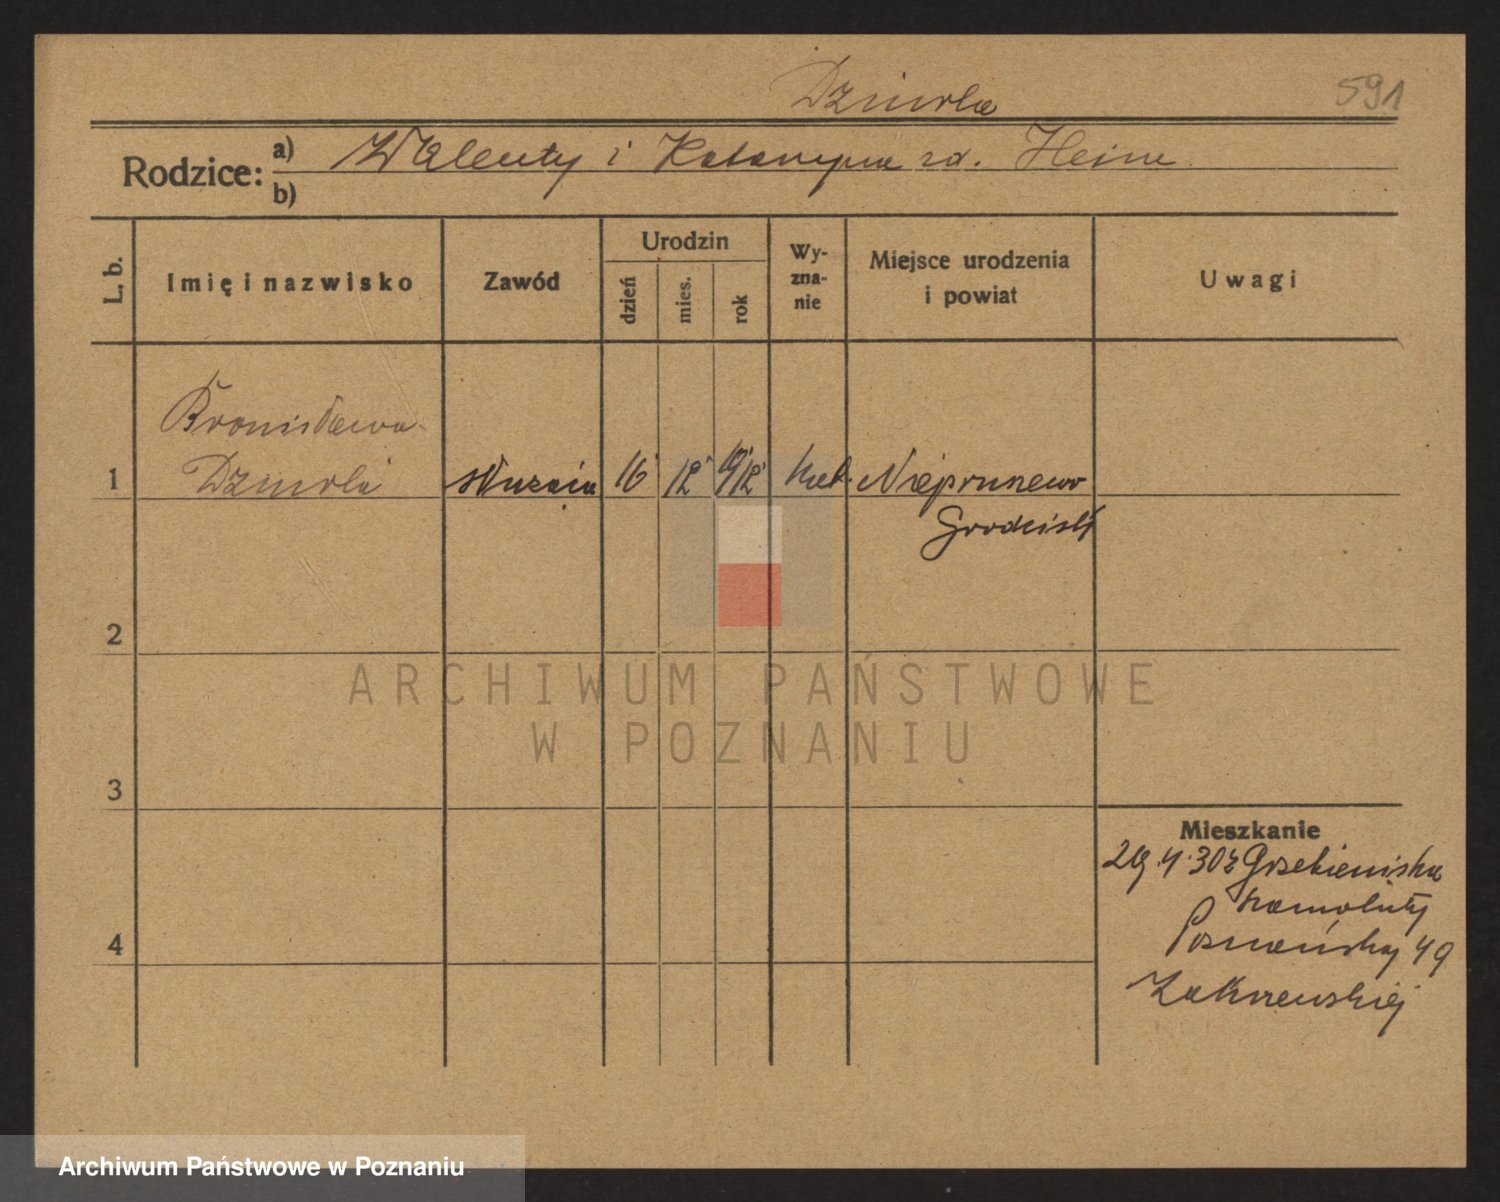 Dziurla
591
Rodzice: a) Walenty i Katarzyna zd. Hein
b)
L. b.
Imię i nazwisko
Zawód
Urodzin
dzień
mies.
rok
Wy-
zna-
nie
Miejsce urodzenia
i powiat
Uwagi
Bronisława
1 Dziurla służąca 16 12 1912 kat. Niepruszewo
Grodzisk
2
ARCHIWUM PAŃSTWOWE
W POZNANIU
3
Mieszkanie
29.4.30 z Grzebieniska
Szamotuły
4 Poznańska 49
Zakrzewskiej
Archiwum Państwowe w Poznaniu